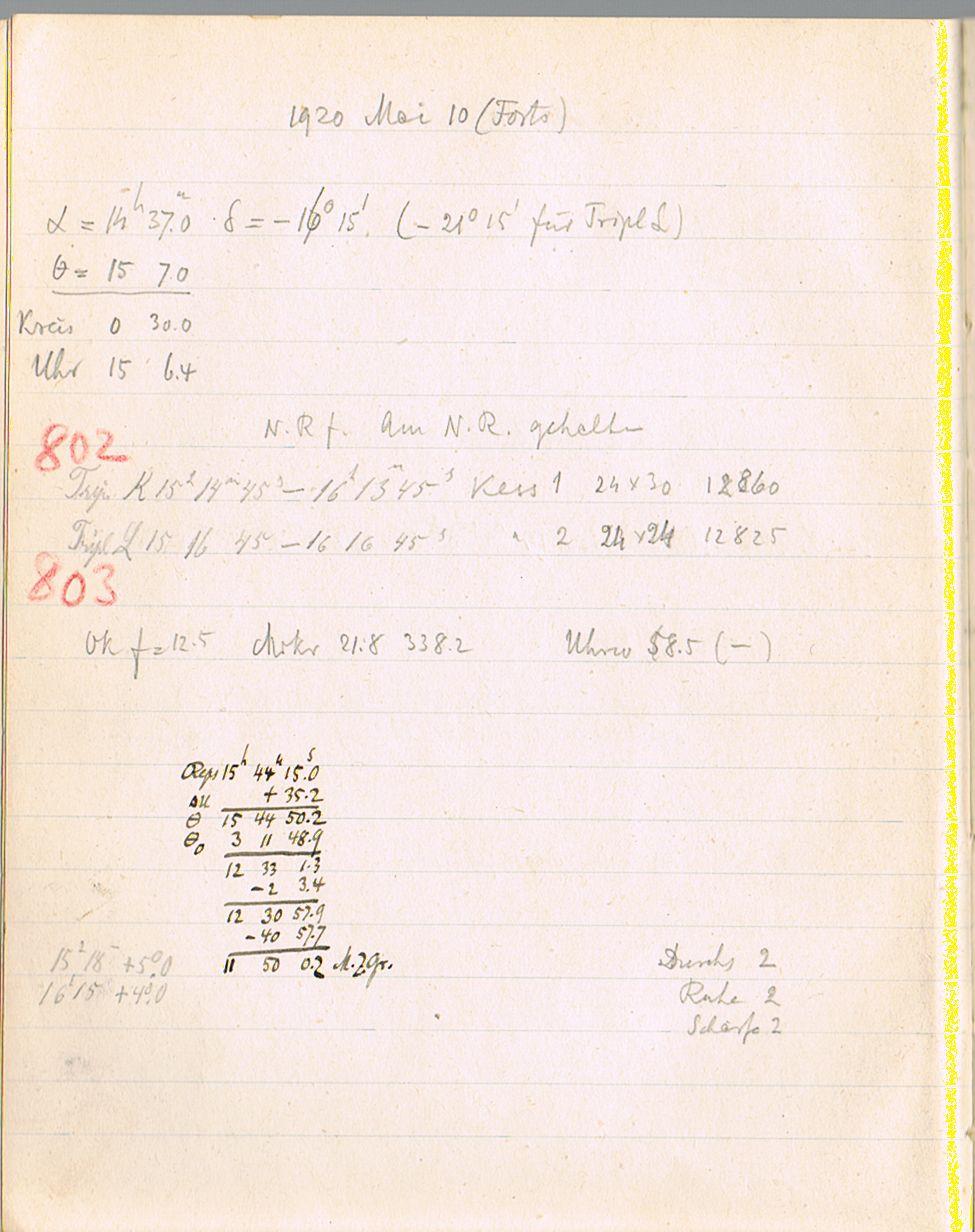 1920 Mai 10 (Forts)
α = 14ʰ 37ᵐ.0 δ = -16° 15' (-21° 15' für Tripl L)
θ = 15 7.0
Kreis 0 30.0
Uhr 15 6.4
N.R f. Am N.R. gehalten
802
Trip. K 15ʰ 14ᵐ 45ˢ – 16ʰ 13ᵐ 45ˢ Kass 1 24×30 12860
Tripl L 15 16 45 – 16 16 45ˢ " 2 24×24 12825
803
Ok f = 12.5 Mikr 21.8 338.2 Uhrw 58.5 (—)
Reps 15ʰ 44ᵐ 15ˢ.0
ΔU + 35.2
θ 15 44 50.2
θ₀ 3 11 48.9
12 33 1.3
-2 3.4
12 30 57.9
-40 57.7
11 50 0.2 M.Z.Gr.
15ʰ 18ᵐ +5°.0
16ʰ 15 +4°.0
Durchs 2
Ruhe 2
Schärfe 2